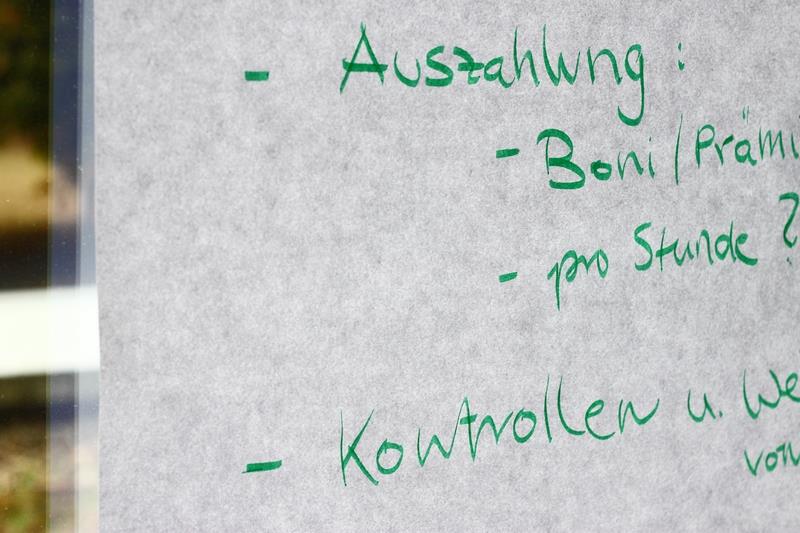 - Auszahlung:
- Boni / Prämi
- pro Stunde ?
- Kontrollen u. We
von